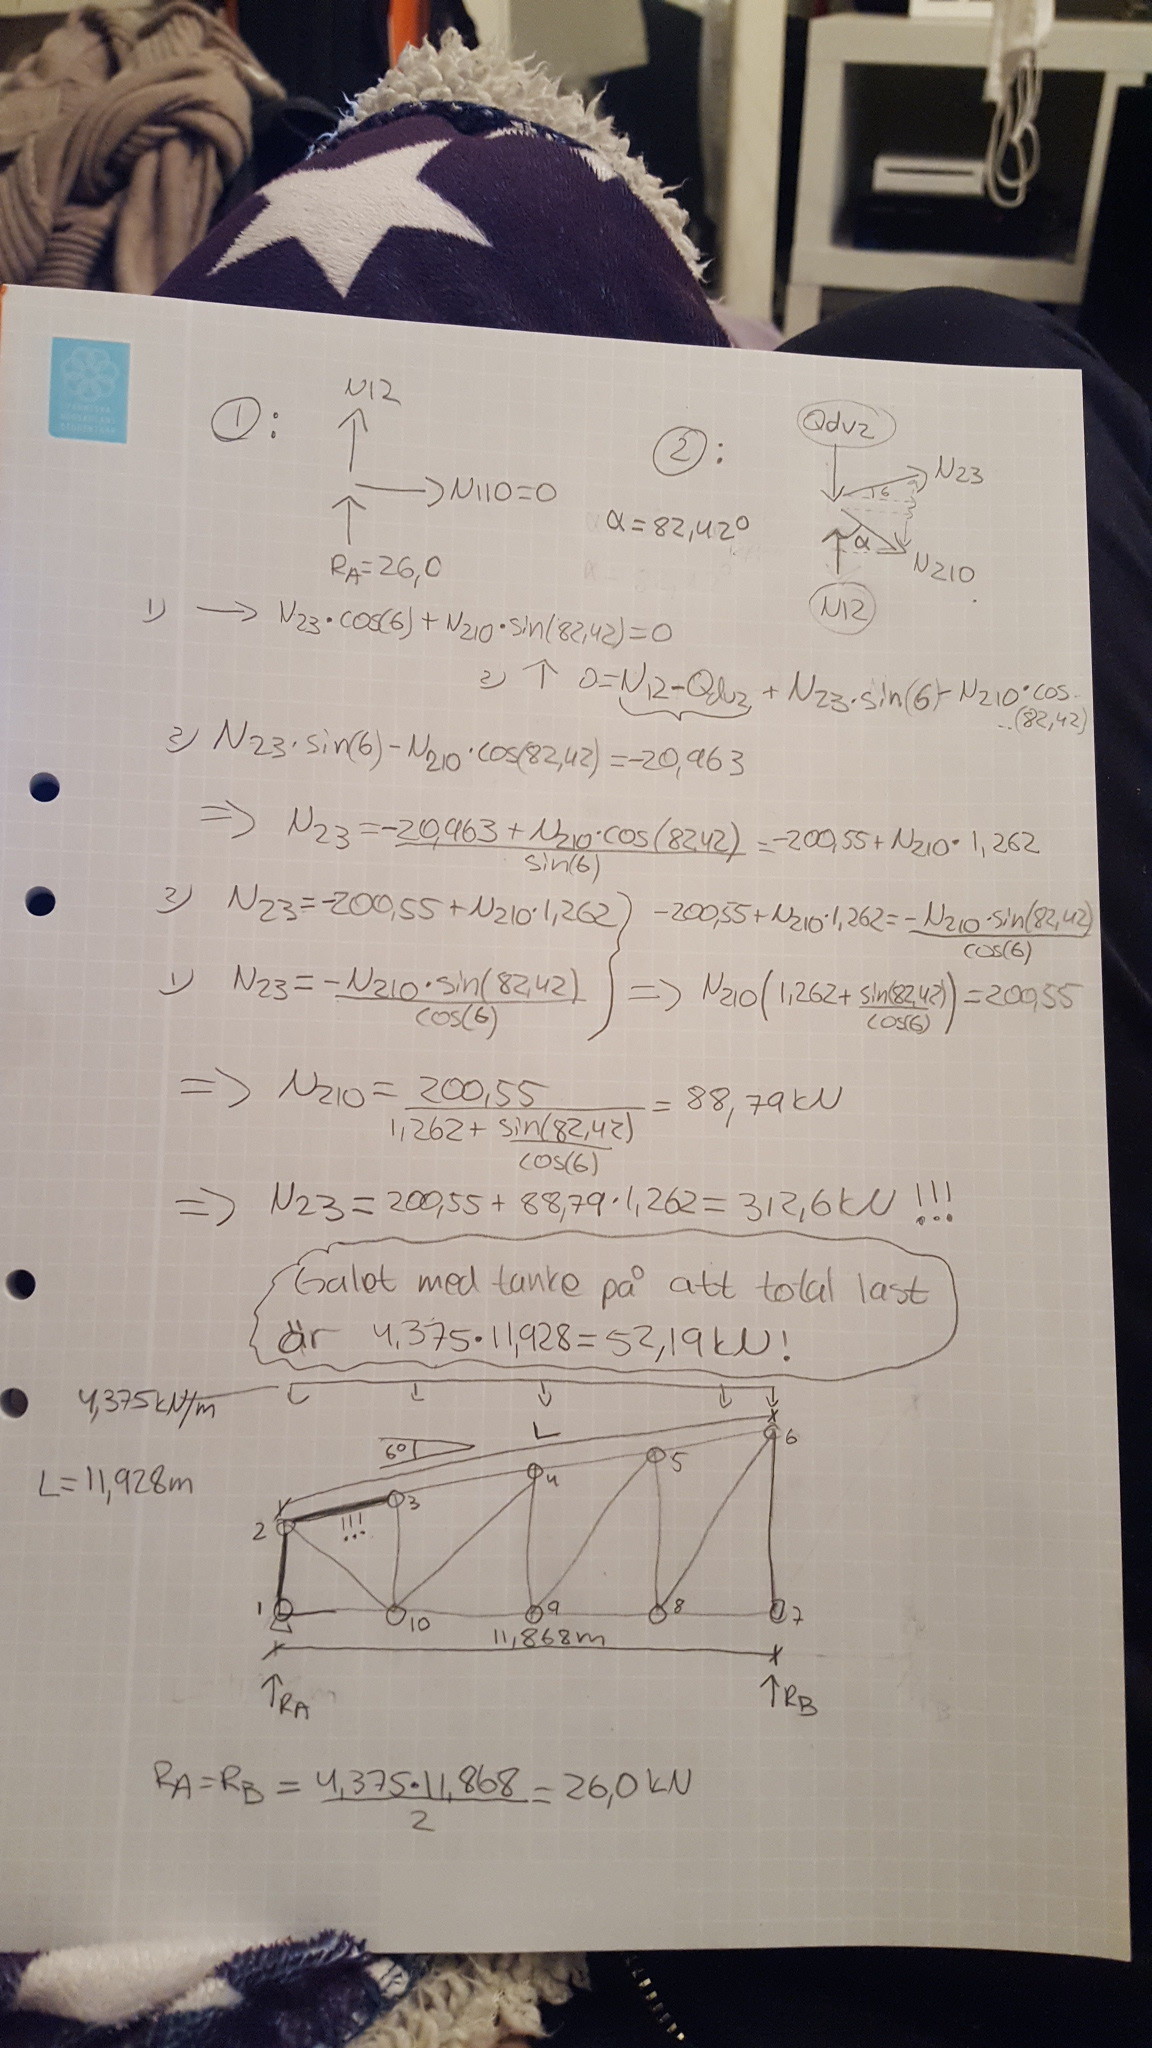 ①:
N12
N110=0
RA=26,0
②:
α=82,42°
Qdv2
N23
6
α
N210
N12
1) → N23·cos(6)+N210·sin(82,42)=0
2) ↑ 0=N12-Qdv2+N23·sin(6)-N210·cos..
..(82,42)
2) N23·sin(6)-N210·cos(82,42)=-20,963
=> N23=-20,963+N210·cos(82,42)/sin(6)=-200,55+N210·1,262
2) N23=-200,55+N210·1,262} -200,55+N210·1,262=-N210·sin(82,42)/cos(6)
1) N23=-N210·sin(82,42)/cos(6) => N210(1,262+sin(82,42)/cos(6))=200,55
=> N210=200,55/(1,262+sin(82,42)/cos(6))=88,79kN
=> N23=200,55+88,79·1,262=312,6kN !!!
Galet med tanke på att total last
är 4,375·11,928=52,19kN!
4,375kN/m
L
6°
L=11,928m
6
5
4
3
2
!!!
1
10
9
8
7
11,868m
↑RA
↑RB
RA=RB=4,375·11,868/2=26,0kN